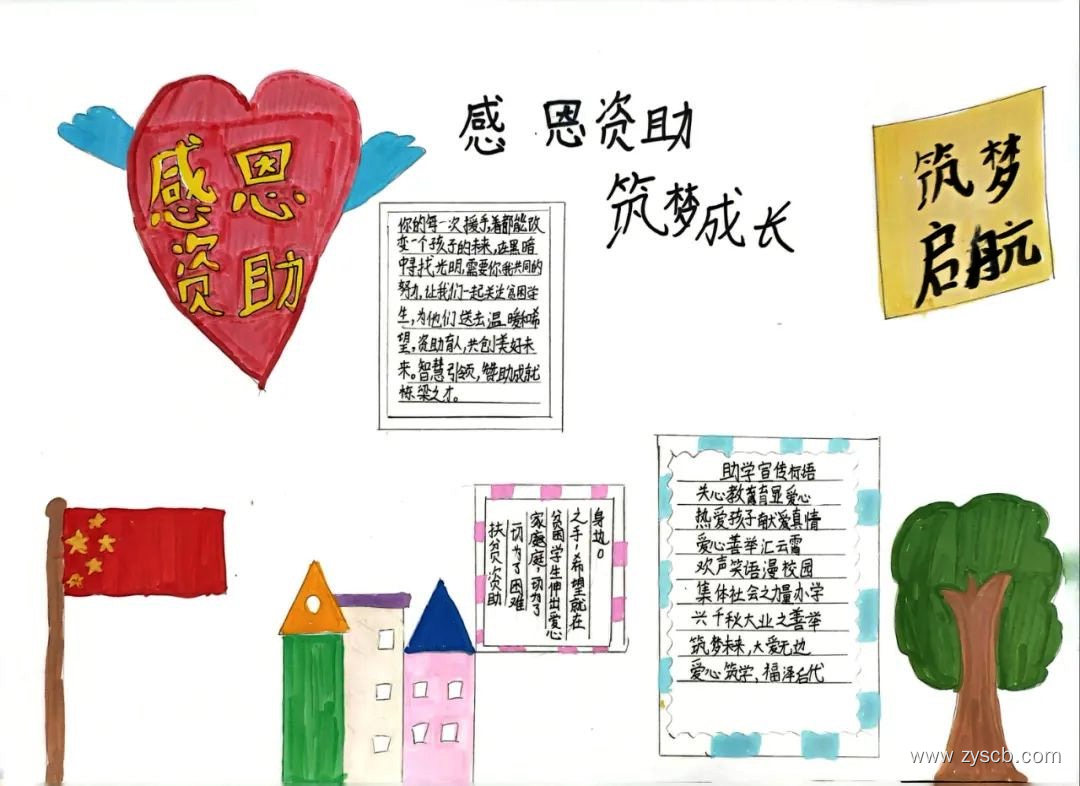 感恩
资助
感 恩资助
筑梦成长
筑梦
启航
你的每一次援手,着都能改
变一个孩子的未来,在黑暗
中寻找光明,需要你我共同的
努力,让我们一起关注贫困学
生,为他们送去温暖和希
望,资助育人,共创美好未
来。智慧引领,赞助成就
栋梁之才。
扶贫资助
一切为了困难
家庭庭,一切为了
贫困学生伸出爱心
之手,希望就在
身边。
助学宣传标语
关心教育显爱心
热爱孩子献爱真情
爱心善举汇云霄
欢声笑语漫校园
集体社会之力量办学
兴千秋大业之善举
筑梦未来,大爱无边
爱心筑学、福泽后代
www.zyscb.com